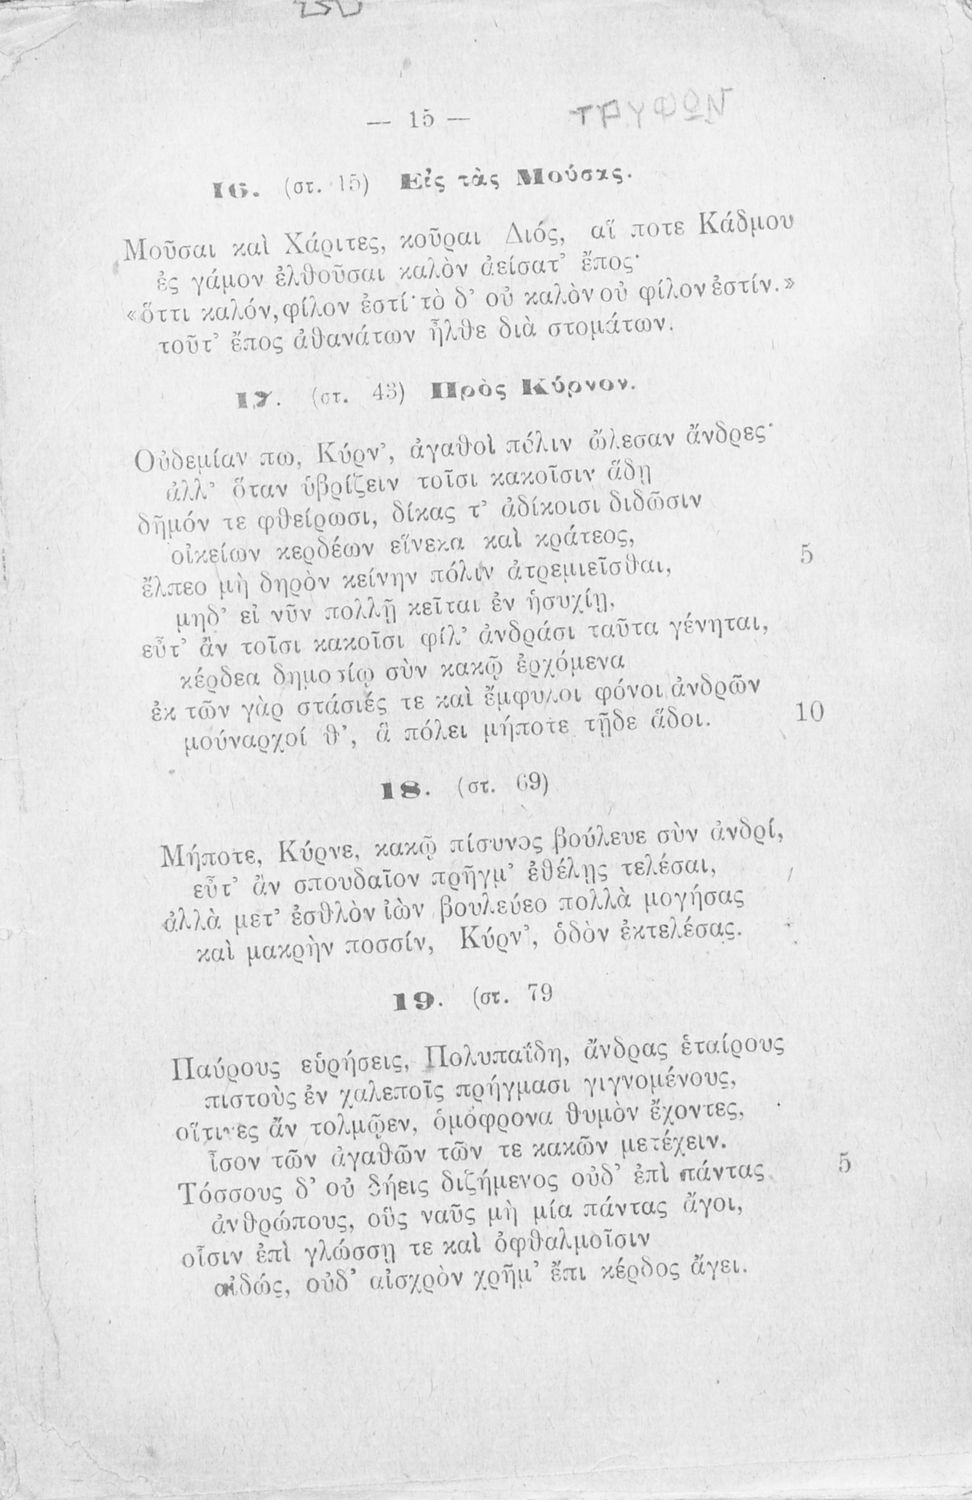 — 15 —
ΤΡΥΦΩΝ
16. (στ. 15) Εἰς τὰς Μούσας.
Μοῦσαι καὶ Χάριτες, κοῦραι Διός, αἵ ποτε Κάδμου
ἐς γάμον ἐλθοῦσαι καλὸν ἀείσατ' ἔπος·
«ὅττι καλόν, φίλον ἐστί· τὸ δ' οὐ καλὸν οὐ φίλον ἐστίν.»
τοῦτ' ἔπος ἀθανάτων ἦλθε διὰ στομάτων.
17. (στ. 43) Πρὸς Κύρνον.
Οὐδεμίαν πω, Κύρν', ἀγαθοὶ πόλιν ὤλεσαν ἄνδρες·
ἀλλ' ὅταν ὑβρίζειν τοῖσι κακοῖσιν ἅδη
δῆμόν τε φθείρωσι, δίκας τ' ἀδίκοισι διδῶσιν
οἰκείων κερδέων εἵνεκα καὶ κράτεος,
ἔλπεο μὴ δηρὸν κείνην πόλιν ἀτρεμιεῖσθαι, 5
μηδ' εἰ νῦν πολλῇ κεῖται ἐν ἡσυχίῃ,
εὖτ' ἂν τοῖσι κακοῖσι φίλ' ἀνδράσι ταῦτα γένηται,
κέρδεα δημοσίῳ σὺν κακῷ ἐρχόμενα
ἐκ τῶν γὰρ στάσιές τε καὶ ἔμφυλοι φόνοι ἀνδρῶν
μούναρχοί θ', ἃ πόλει μήποτε τῇδε ἅδοι. 10
18. (στ. 69)
Μήποτε, Κύρνε, κακῷ πίσυνος βούλευε σὺν ἀνδρί,
εὖτ' ἂν σπουδαῖον πρῆγμ' ἐθέλῃς τελέσαι,
ἀλλὰ μετ' ἐσθλὸν ἰὼν βουλεύεο πολλὰ μογήσας
καὶ μακρὴν ποσσίν, Κύρν', ὁδὸν ἐκτελέσας.
19. (στ. 79
Παύρους εὑρήσεις, Πολυπαΐδη, ἄνδρας ἑταίρους
πιστοὺς ἐν χαλεποῖς πρήγμασι γιγνομένους,
οἵτινες ἂν τολμῷεν, ὁμόφρονα θυμὸν ἔχοντες,
ἶσον τῶν ἀγαθῶν τῶν τε κακῶν μετέχειν.
Τόσσους δ' οὐ δήεις διζήμενος οὐδ' ἐπὶ πάντας 5
ἀνθρώπους, οὓς ναῦς μὴ μία πάντας ἄγοι,
οἷσιν ἐπὶ γλώσσῃ τε καὶ ὀφθαλμοῖσιν
αἰδώς, οὐδ' αἰσχρὸν χρῆμ' ἔπι κέρδος ἄγει.